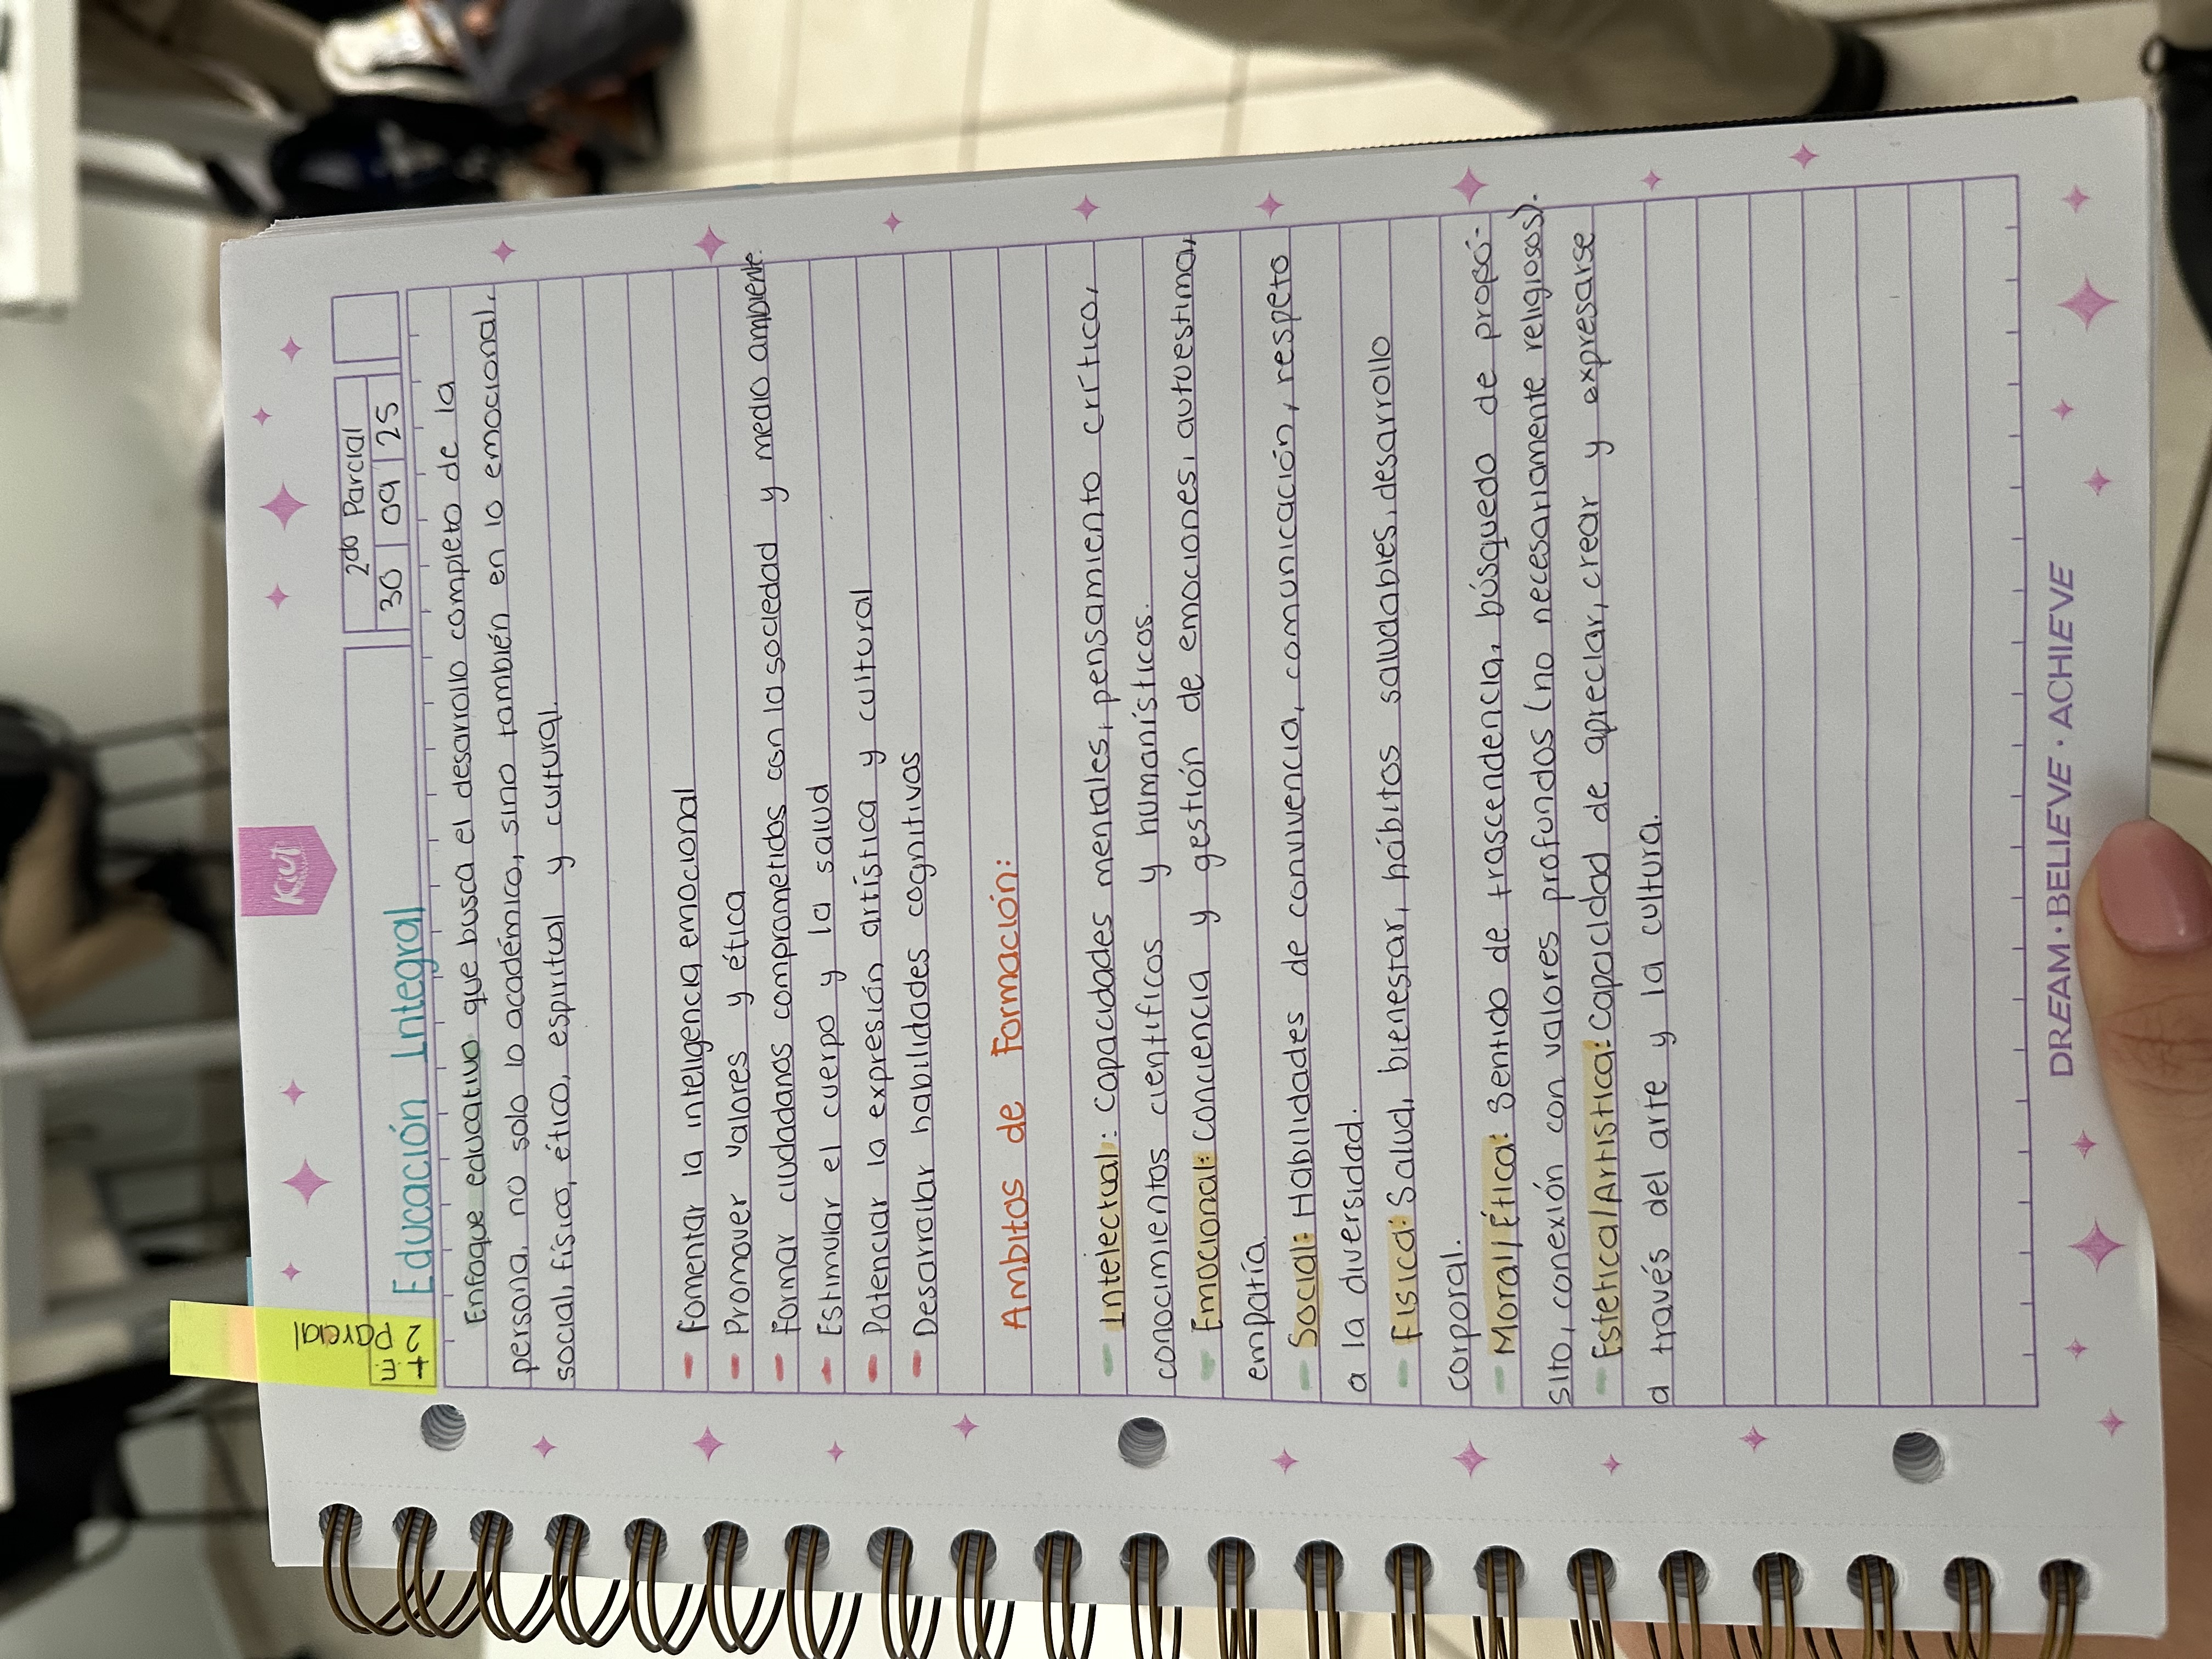 Kiut
2do Parcial
30 09 25
2+
m
Parcial
Educación Integral
Enfoque educativo que busca el desarrollo completo de la
persona, no solo lo académico, sino también en lo emocional,
social, físico, ético, espiritual y cultural.
- Fomentar la inteligencia emocional
- Promover valores y ética
- Formar ciudadanos comprometidos con la sociedad y medio ambiente.
- Estimular el cuerpo y la salud
- Potenciar la expresión artística y cultural
- Desarrollar habilidades cognitivas
Ambitos de Formación:
- Intelectual: capacidades mentales, pensamiento crítico,
conocimientos científicos y humanísticos.
- Emocional: conciencia y gestión de emociones, autoestima,
empatía.
- Social: Habilidades de convivencia, comunicación, respeto
a la diversidad.
- Física: Salud, bienestar, hábitos saludables, desarrollo
corporal.
- Moral/Ética: Sentido de trascendencia, búsquedo de propó-
sito, conexión con valores profundos (no necesariamente religiosos).
- Estética/Artística: Capacidad de apreciar, crear y expresarse
a través del arte y la cultura.
DREAM · BELIEVE · ACHIEVE